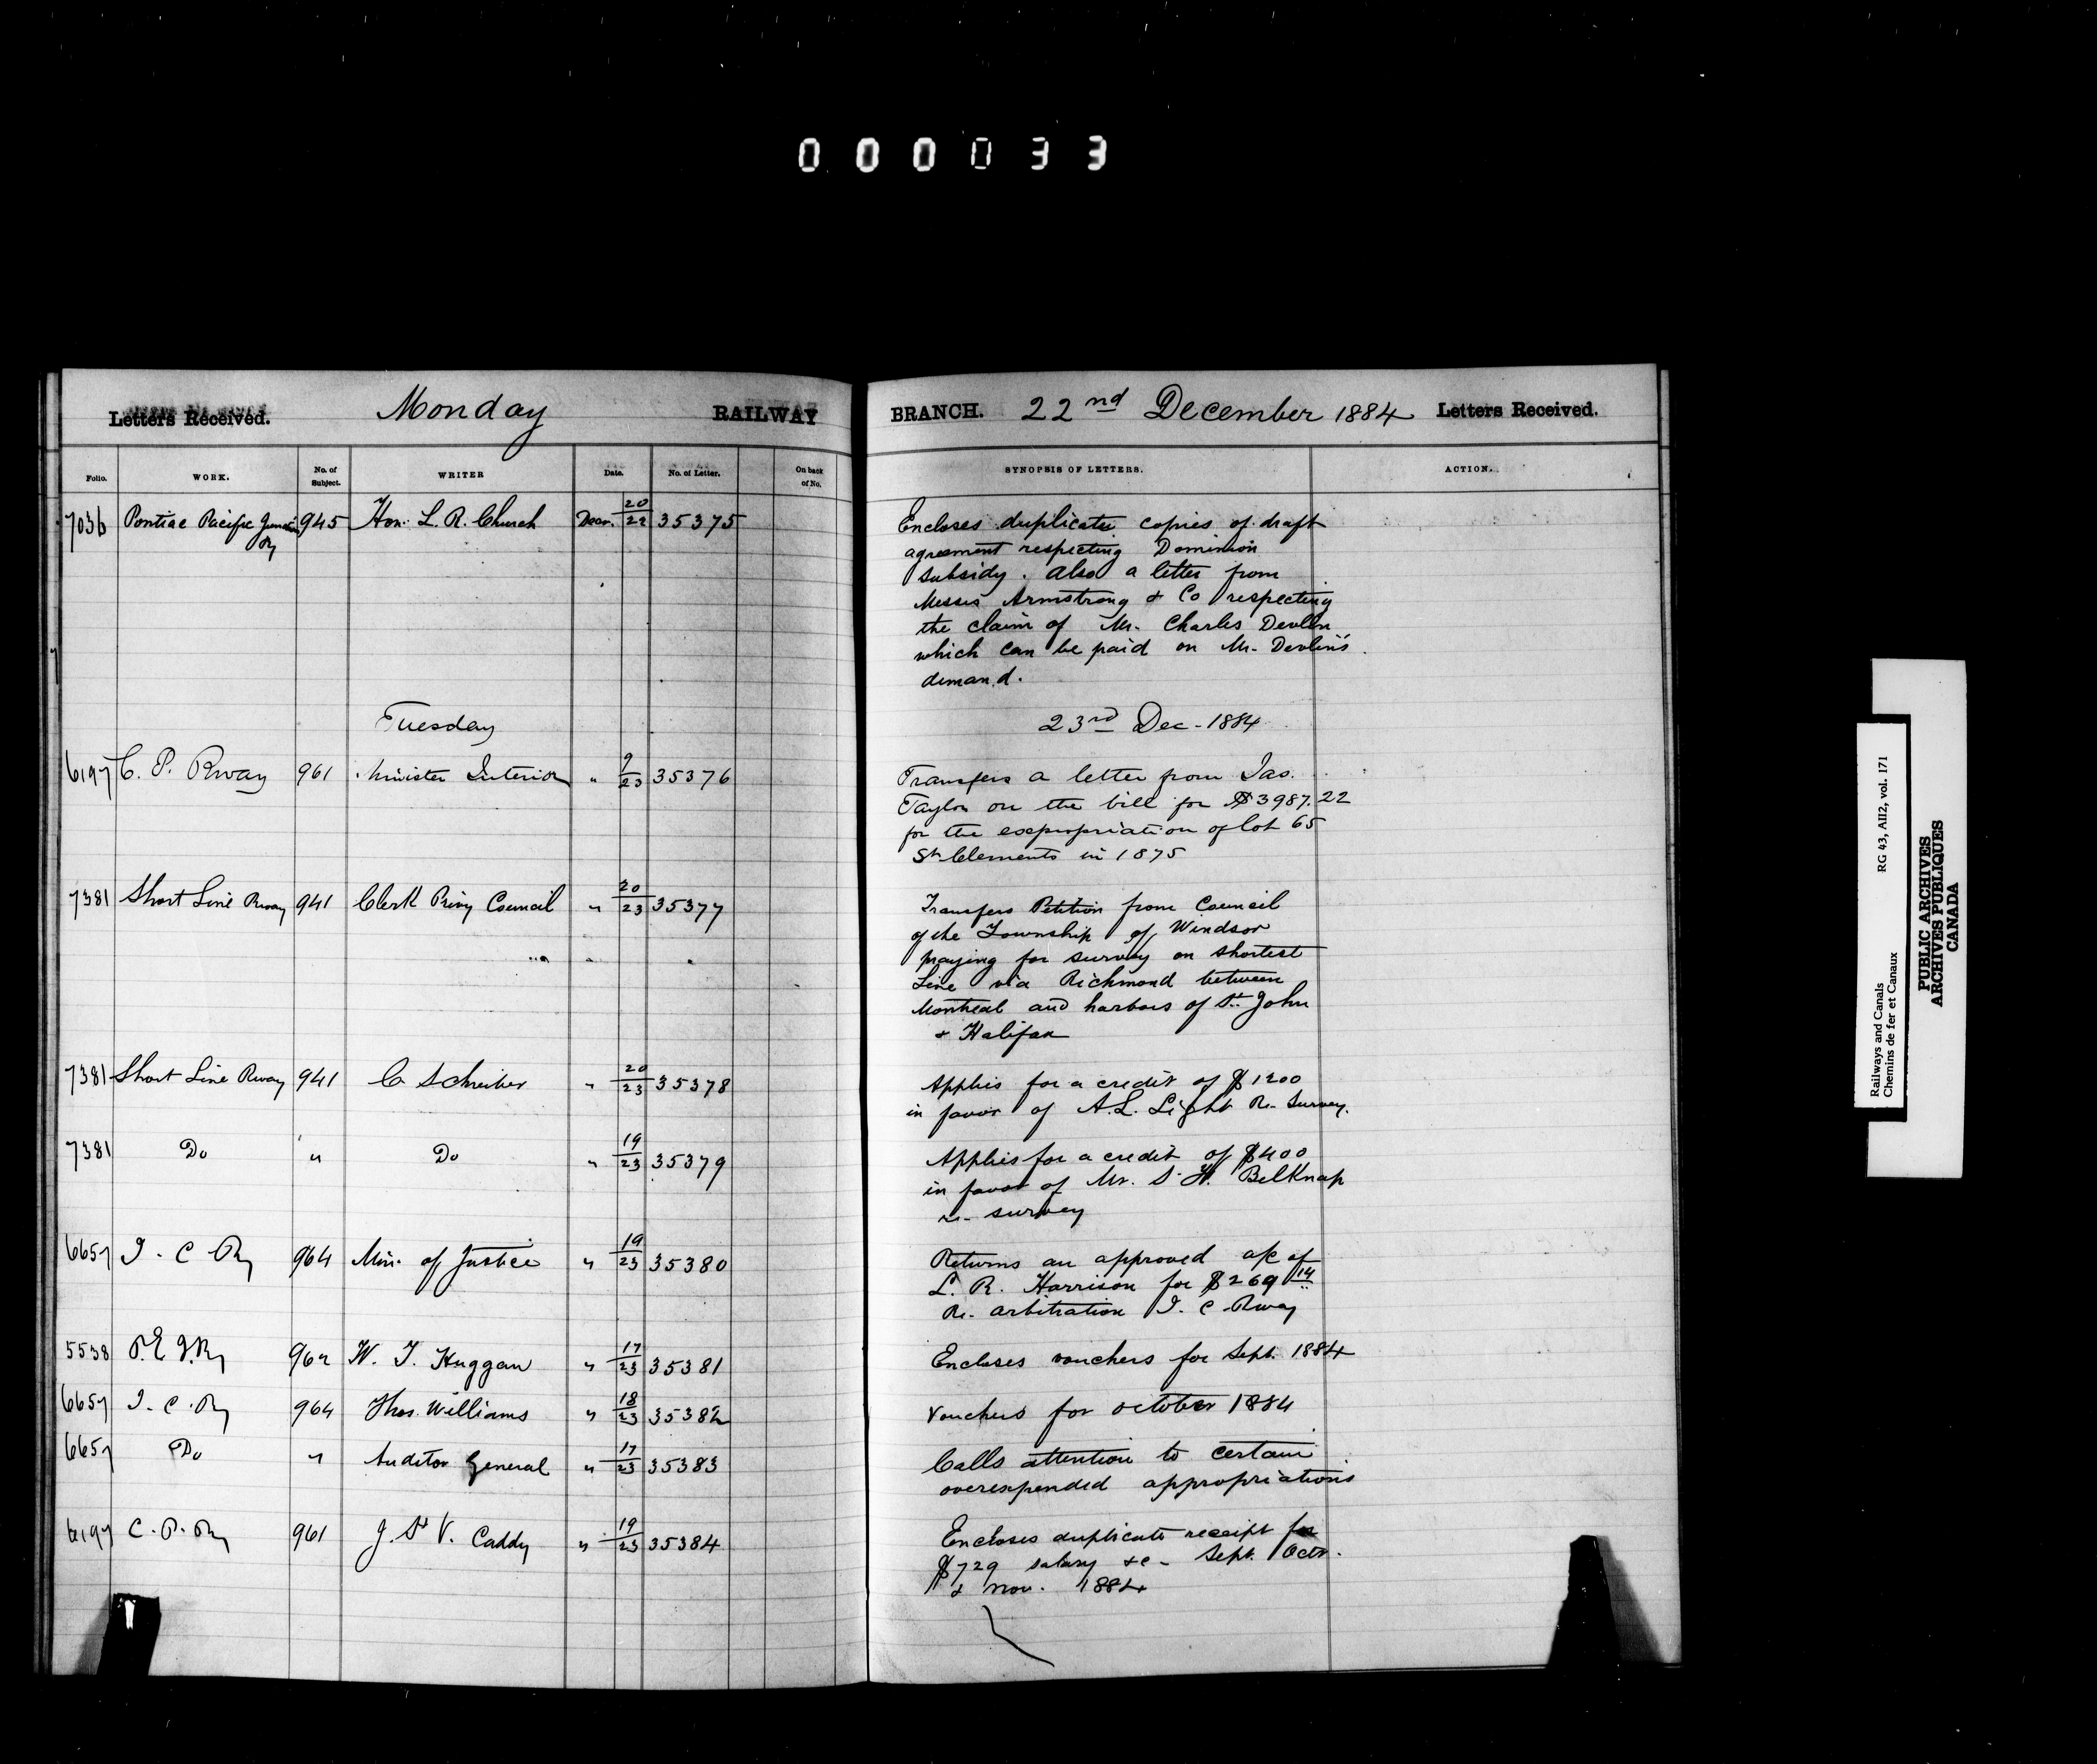 000033
Letters Received. Monday RAILWAY BRANCH. 22nd December 1884 Letters Received.
Folio. WORK. No. of Subject. WRITER Date. No. of Letter. On back of No. SYNOPSIS OF LETTERS. ACTION.
7036 Pontiac Pacific Junction Ry 945 Hon. L. R. Church Decr. 20/22 35375 Encloses duplicate copies of draft
agreement respecting Dominion
subsidy. Also a letter from
Messrs Armstrong & Co respecting
the claim of Mr. Charles Devlin
which can be paid on Mr. Devlin's
demand.
Tuesday 23rd Dec - 1884
6197 C. P. Rway 961 Minister Interior " 9/23 35376 Transfers a letter from Jas.
Taylor on the bill for $3987.22
for the expropriation of lot 65
St Clements in 1875
7381 Short Line Rway 941 Clerk Privy Council " 20/23 35377 Transfers Petition from Council
of the Township of Windsor
praying for survey on shortest
Line via Richmond between
Montreal and harbors of St. John
& Halifax
7381 Short Line Rway 941 C Schreiber " 20/23 35378 Applies for a credit of $1200
in favor of A. L. Light Re- Survey.
7381 Do " Do " 19/23 35379 Applies for a credit of $400
in favor of Mr. S. H. Belknap
re- survey
6657 I. C Ry 964 Min. of Justice " 19/23 35380 Returns an approved a/c of
L. R. Harrison for $269 14
Re. arbitration I. C. Rway
5538 P. E I. Ry 962 W. T. Huggan " 17/23 35381 Encloses vouchers for Sept. 1884
6657 I. C. Ry 964 Thos. Williams " 18/23 35382 Vouchers for October 1884
6657 Do " Auditor General " 17/23 35383 Calls attention to certain
overexpended appropriations
6197 C. P. Ry 961 J. St V. Caddy " 19/23 35384 Encloses duplicate receipt for
$729 salary &c - Sept. Octr.
& Nov. 1884
Railways and Canals RG 43, AII2, vol. 171
Chemins de fer et Canaux
PUBLIC ARCHIVES
ARCHIVES PUBLIQUES
CANADA